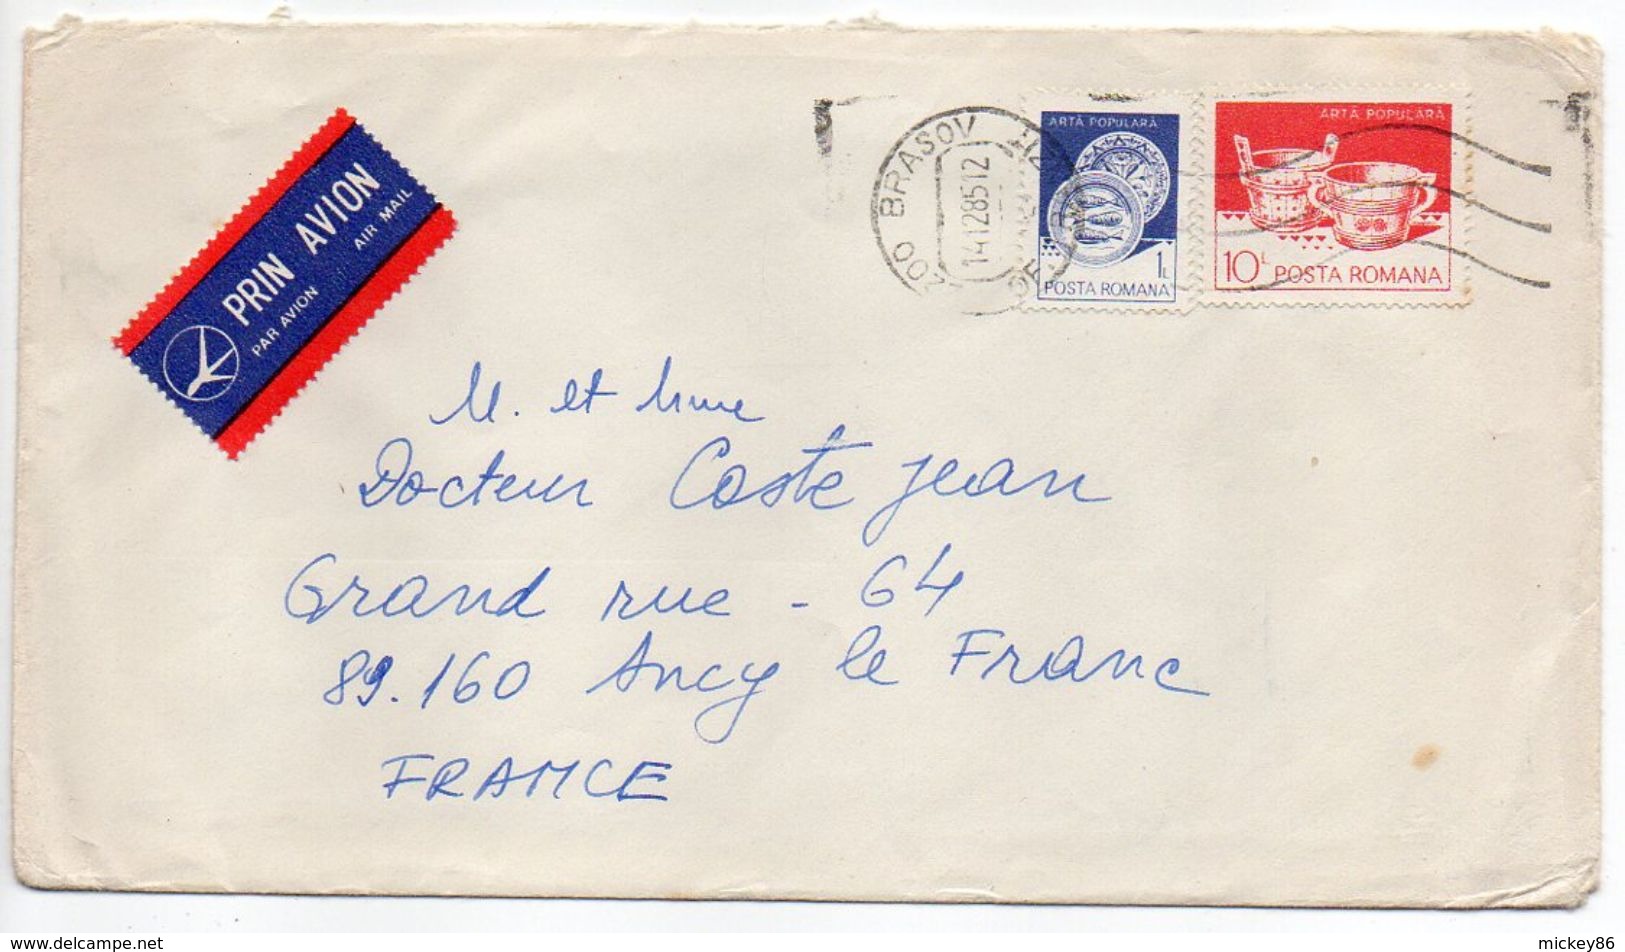 PRIN AVION
PAR AVION AIR MAIL
BRASOV
14.12.85 12
ARTĂ POPULARĂ
1L
POSTA ROMANA
ARTĂ POPULARĂ
10L POSTA ROMANA
M. et Mme
Docteur Coste Jean
Grand rue - 64
89.160 Ancy le Franc
FRANCE
delcampe.net
mickey86